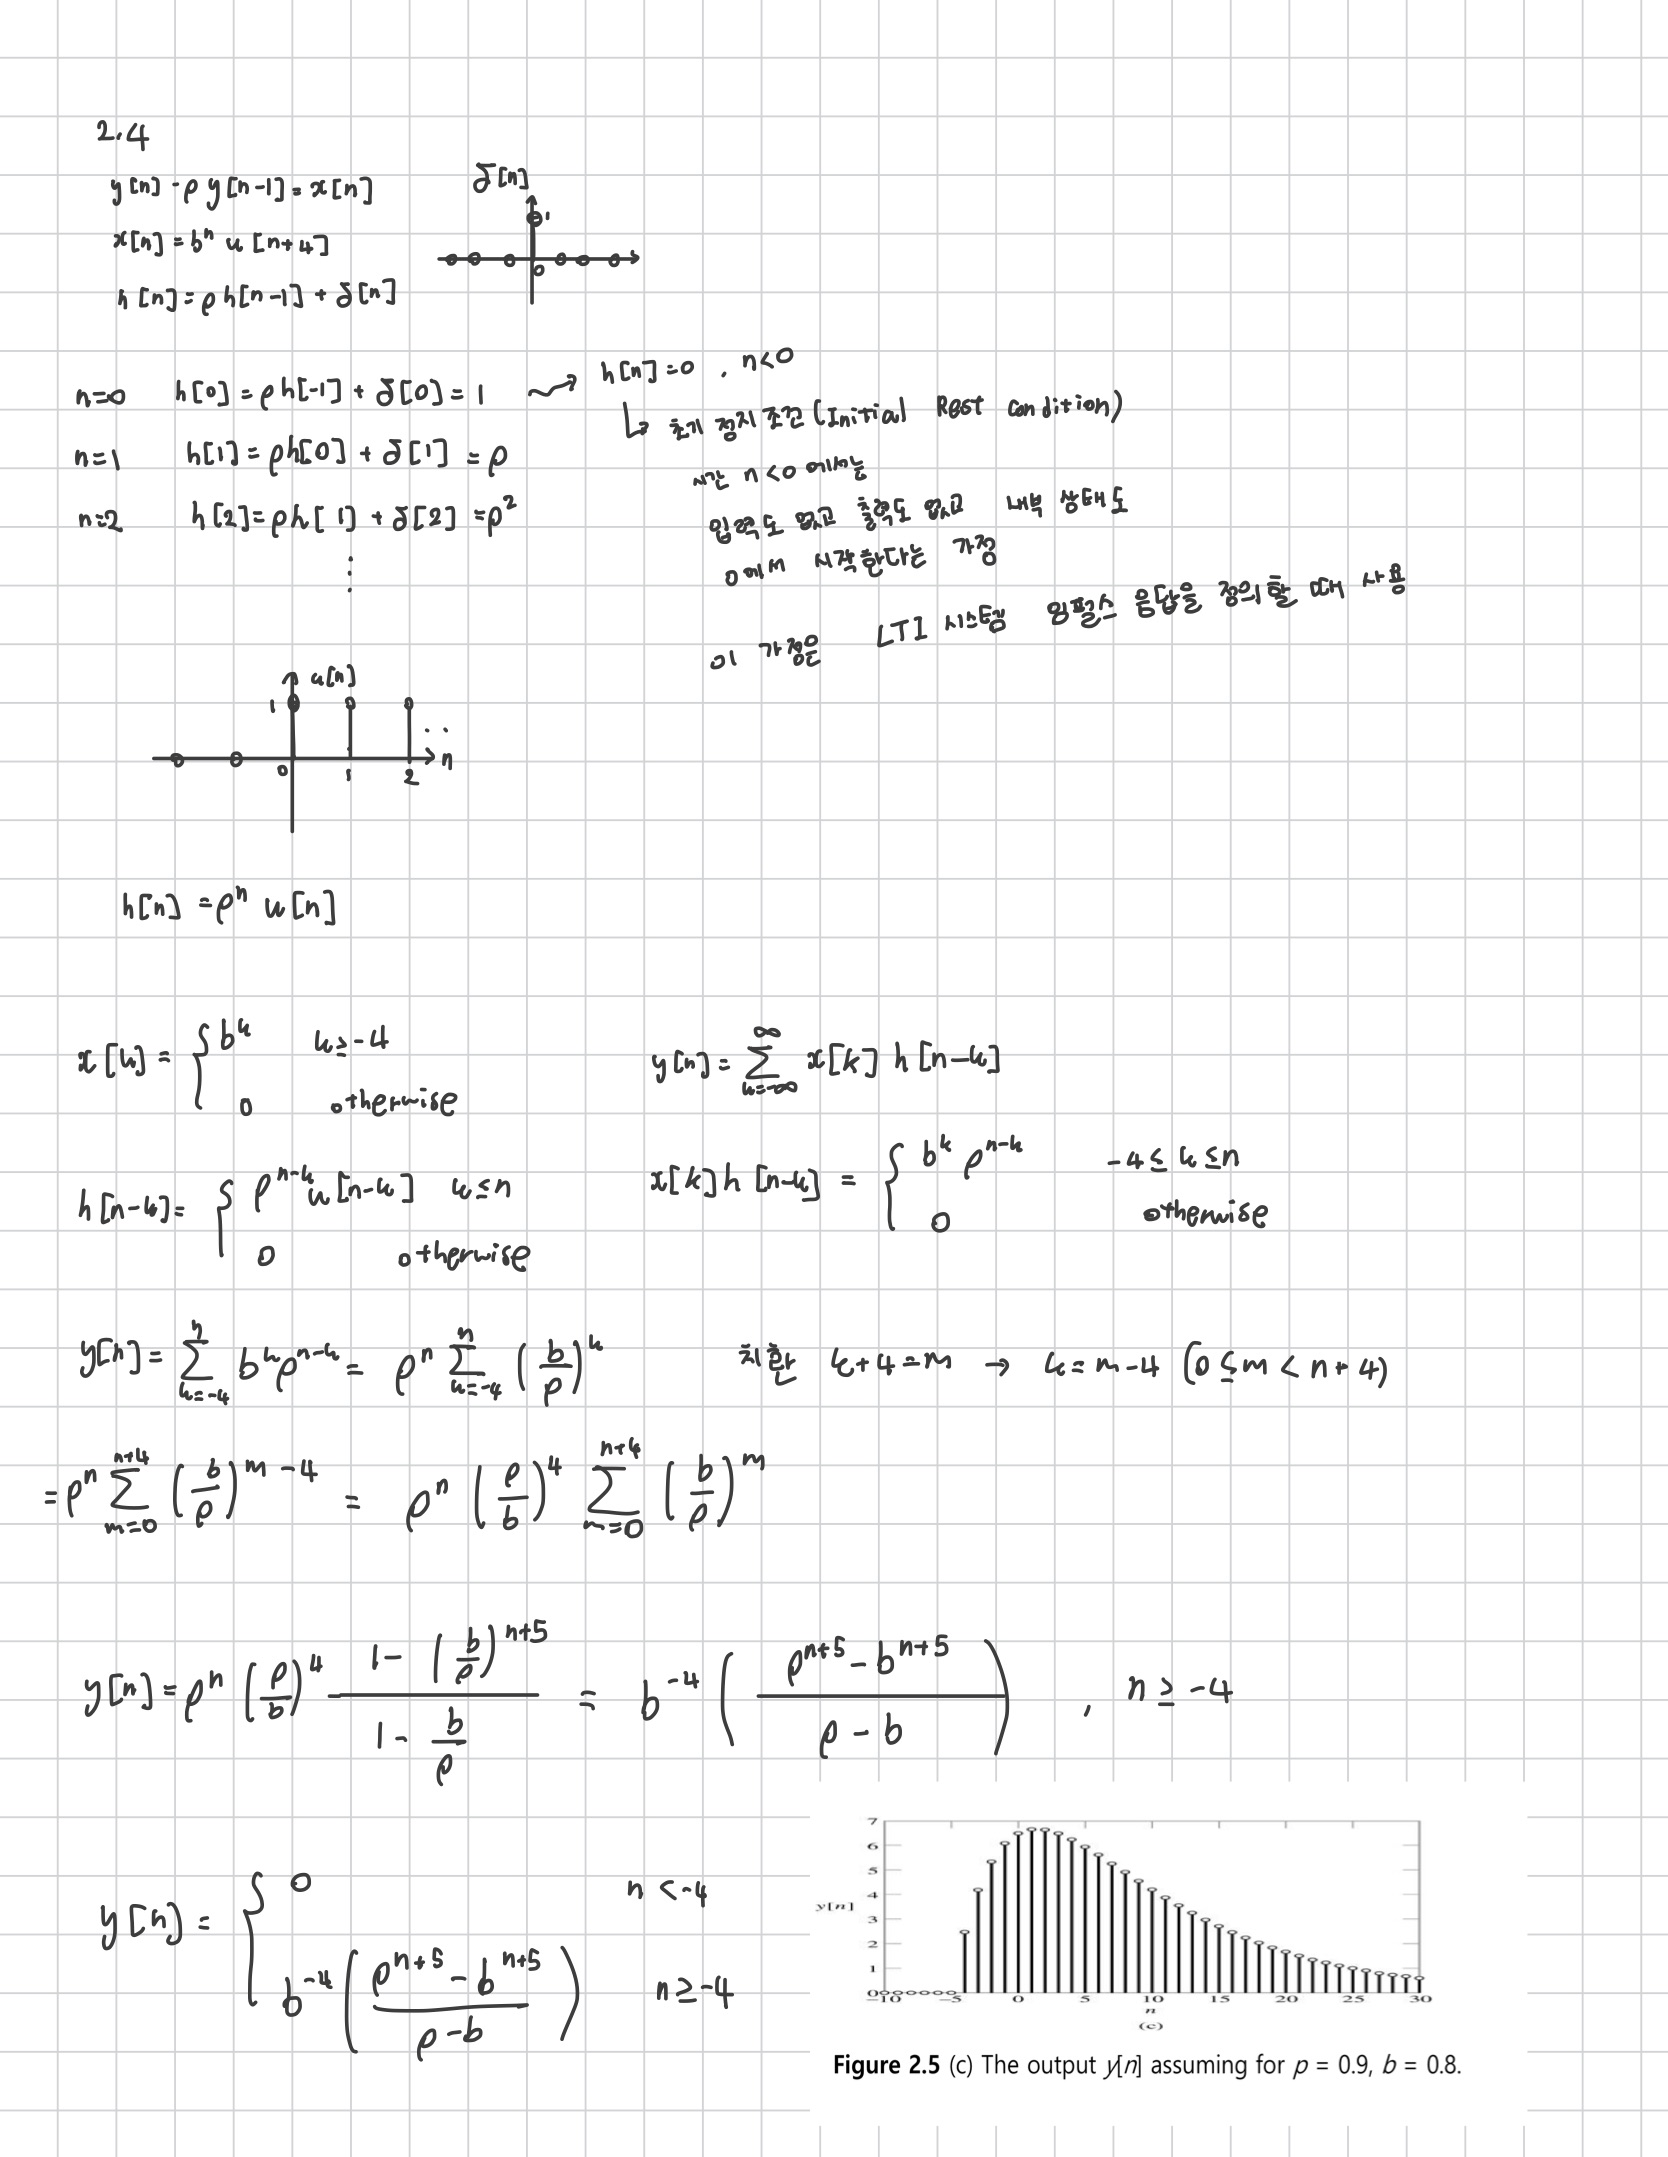 2.4
y[n] - ρ y[n-1] = x[n]
x[n] = bⁿ u[n+4]
h[n] = ρ h[n-1] + δ[n]
δ[n]
1
0
n=0 h[0] = ρh[-1] + δ[0] = 1
h[n] = 0 , n<0
↳ 초기 정지 조건 (Initial Rest Condition)
n=1 h[1] = ρh[0] + δ[1] = ρ
시간 n<0 에서는
n=2 h[2] = ρh[1] + δ[2] = ρ²
입력도 없고 출력도 없고 내부 상태도
0에서 시작한다는 가정
⋮
이 가정은 LTI 시스템 임펄스 응답을 정의할 때 사용
u[n]
1
. .
n
0 1 2
h[n] = ρⁿ u[n]
x[k] = { bᵏ k ≥ -4
0 otherwise
y[n] = ∑_{k=-∞}^{∞} x[k] h[n-k]
h[n-k] = { ρ^{n-k} u[n-k] k ≤ n
0 otherwise
x[k] h[n-k] = { bᵏ ρ^{n-k} -4 ≤ k ≤ n
0 otherwise
y[n] = ∑_{k=-4}^{n} bᵏ ρ^{n-k} = ρⁿ ∑_{k=-4}^{n} (b/ρ)ᵏ 치환 k+4=m → k=m-4 (0 ≤ m < n+4)
= ρⁿ ∑_{m=0}^{n+4} (b/ρ)^{m-4} = ρⁿ (ρ/b)⁴ ∑_{m=0}^{n+4} (b/ρ)^m
y[n] = ρⁿ (ρ/b)⁴ (1 - (b/ρ)^{n+5}) / (1 - b/ρ) = b^{-4} ( (ρ^{n+5} - b^{n+5}) / (ρ - b) ) , n ≥ -4
y[n] = { 0 n < -4
b^{-4} ( (ρ^{n+5} - b^{n+5}) / (ρ-b) ) n ≥ -4
7
6
5
4
y[n]
3
2
1
0
-10 -5 0 5 10 15 20 25 30
n
(c)
Figure 2.5 (c) The output y[n] assuming for p = 0.9, b = 0.8.